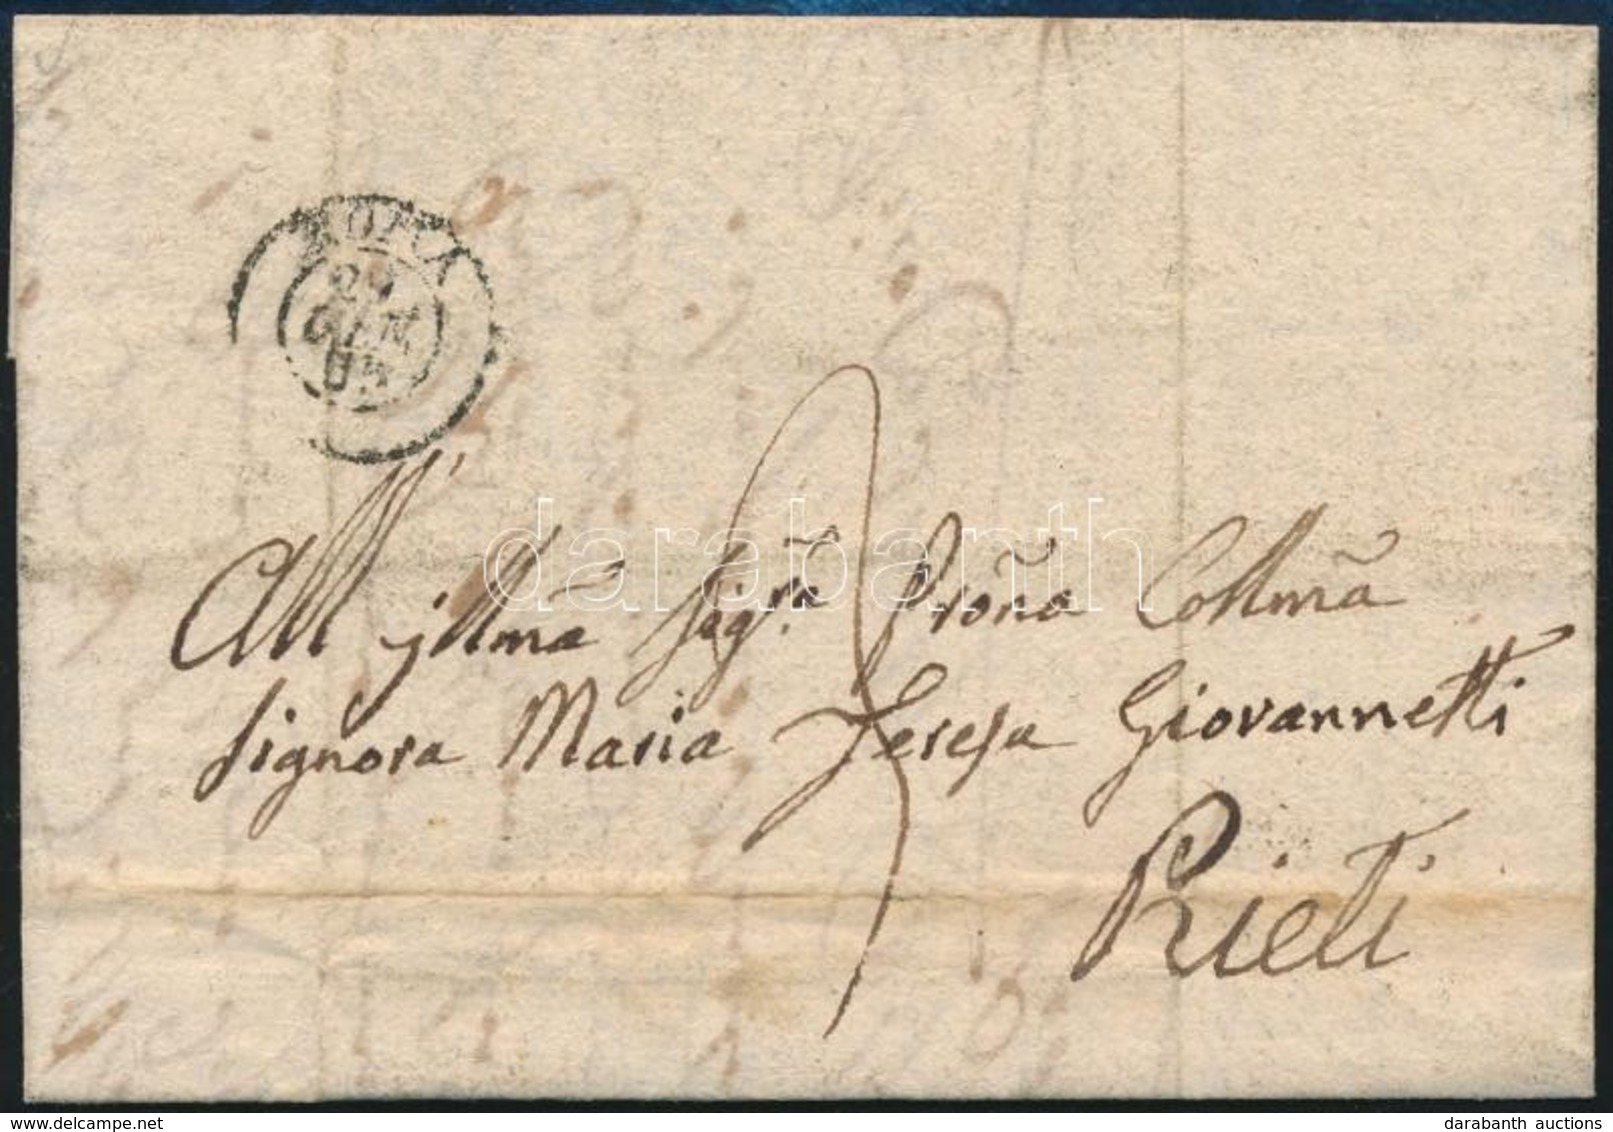 ROMA
29
GEN
All Jllmã Sig.ra Proña Collmã
Signora Maria Teresa Giovannetti
Rieti
3
darabanth
delcampe.net
darabanth auctions